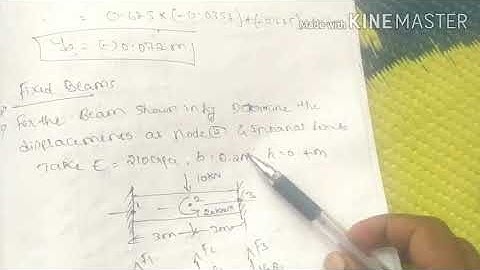 = 0.675 × (-0.0357) + (-0.
Made with KINEMASTER
y₂ = (-) 0.072 m
Fixed Beams
For the Beam shown in fig Determine the
displacements at node ② & internal
Take E = 210GPa, b = 0.2m h = 0 m
10KN
1 2 3
3m 2m
F1 F2 F3